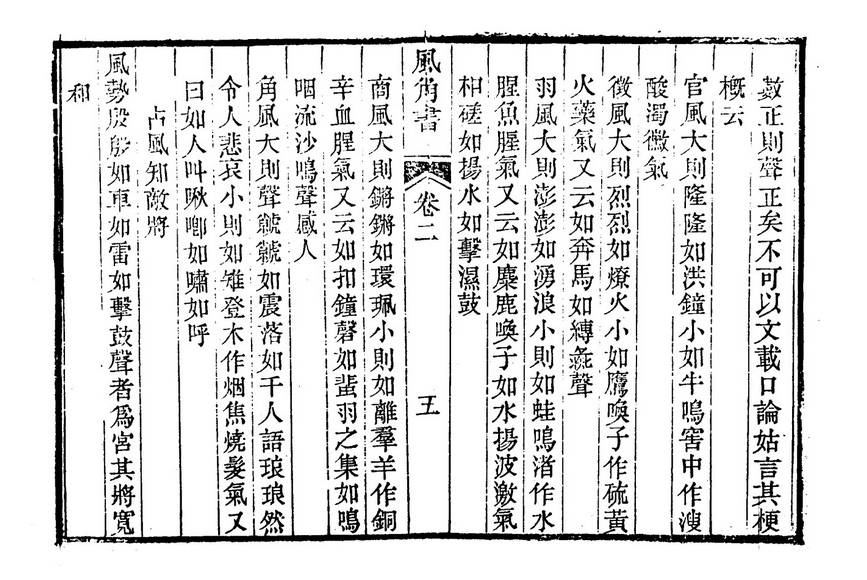 數正則聲正矣不可以文載口論姑言其梗
概云
宮風大則隆隆如洪鐘小如牛鳴窖中作溲
酸濁黴氣
徵風大則烈烈如燎火小如鷹喚子作硫黃
火藥氣又云如奔馬如縛彘聲
羽風大則澎澎如湧浪小則如蛙鳴渚作水
腥魚腥氣又云如麋鹿喚子如水揚波激氣
相磋如揚水如擊濕鼓
風角書
卷二
五
商風大則鏘鏘如環珮小則如離羣羊作銅
辛血腥氣又云如扣鐘磬如蜚羽之集如鳴
咽流沙鳴聲感人
角風大則聲虩虩如震落如千人語琅琅然
令人悲哀小則如雉登木作烟焦燒髮氣又
曰如人叫啾啣如嘯如呼
占風知敵將
風勢殷殷如車如雷如擊鼓聲者爲宮其將寬
和